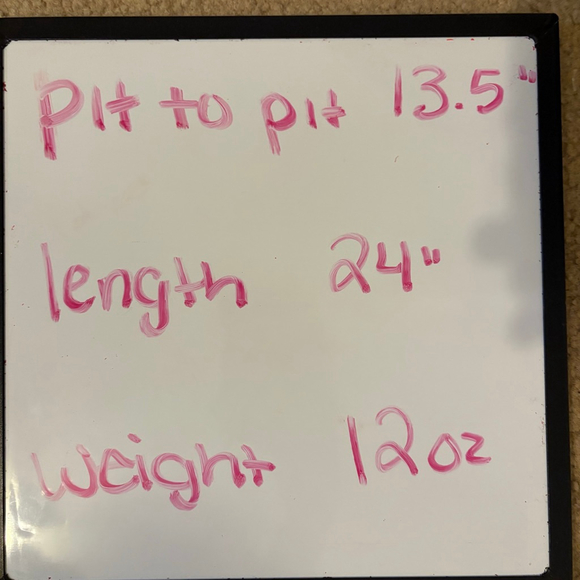 pit to pit 13.5"
length 24"
weight 12oz